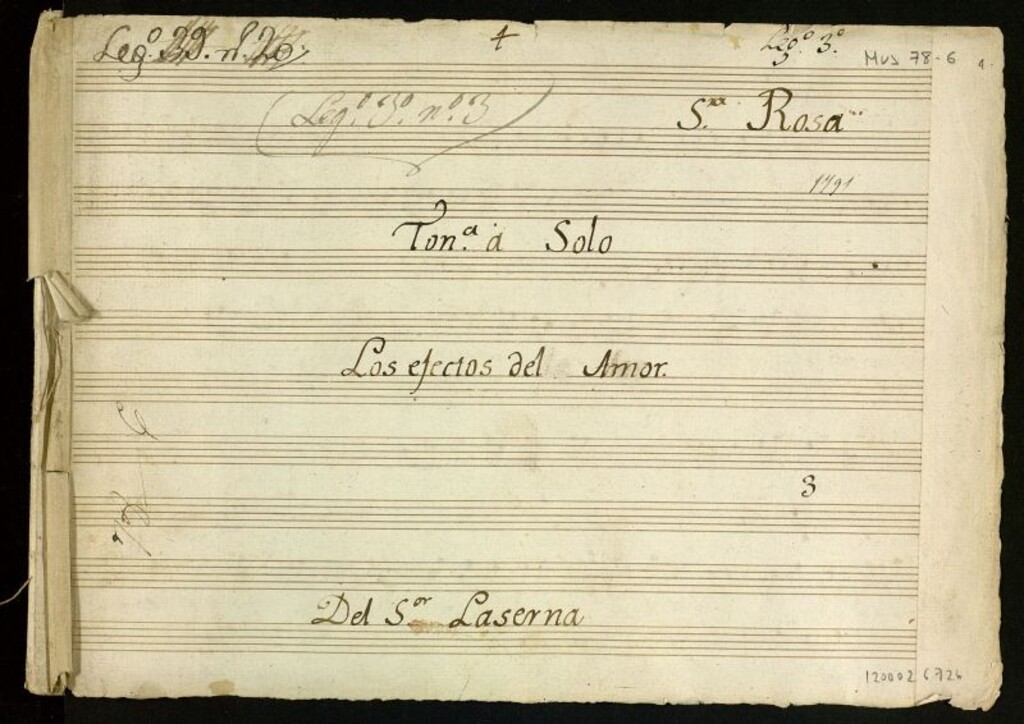 Leg.º 39. n.º 26.
4
Leg.º 3.º
3
Mus 78-6
(Leg.º 3.º n.º 3)
S.ra Rosa
1791
Ton.ª à Solo
Los efectos del Amor.
3
Del S.or Laserna
1200026726